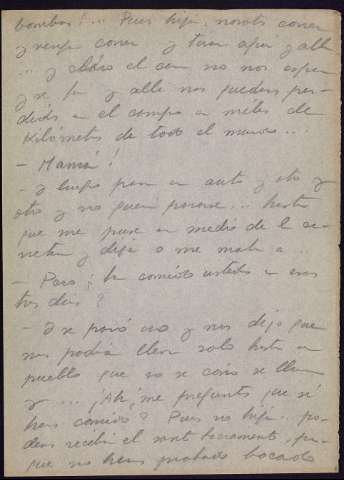 bombas!... Pues hija, nosotros correr
y venga correr y tirar aquí y allí
... y claro el tren no nos espera
y se fue y allí nos quedamos per-
didos en el campo a miles de
Kilómetros de todo el mundo...
- Mamá!
- Y luego pasa un auto y otro y
otro y no quieren pararse... hasta
que me puse en medio de la ca-
rretera y dije o me mata o...
- Pero ¿han comido ustedes en esos
tres días?
- Y se paró uno y nos dijo que
nos podía llevar solo hasta un
pueblo que no se como se llama
y ... ¡Ah, me preguntas que si
hemos comido? Pues no hija.. po-
demos recibir el santo sacramento, por-
que no hemos probado bocado